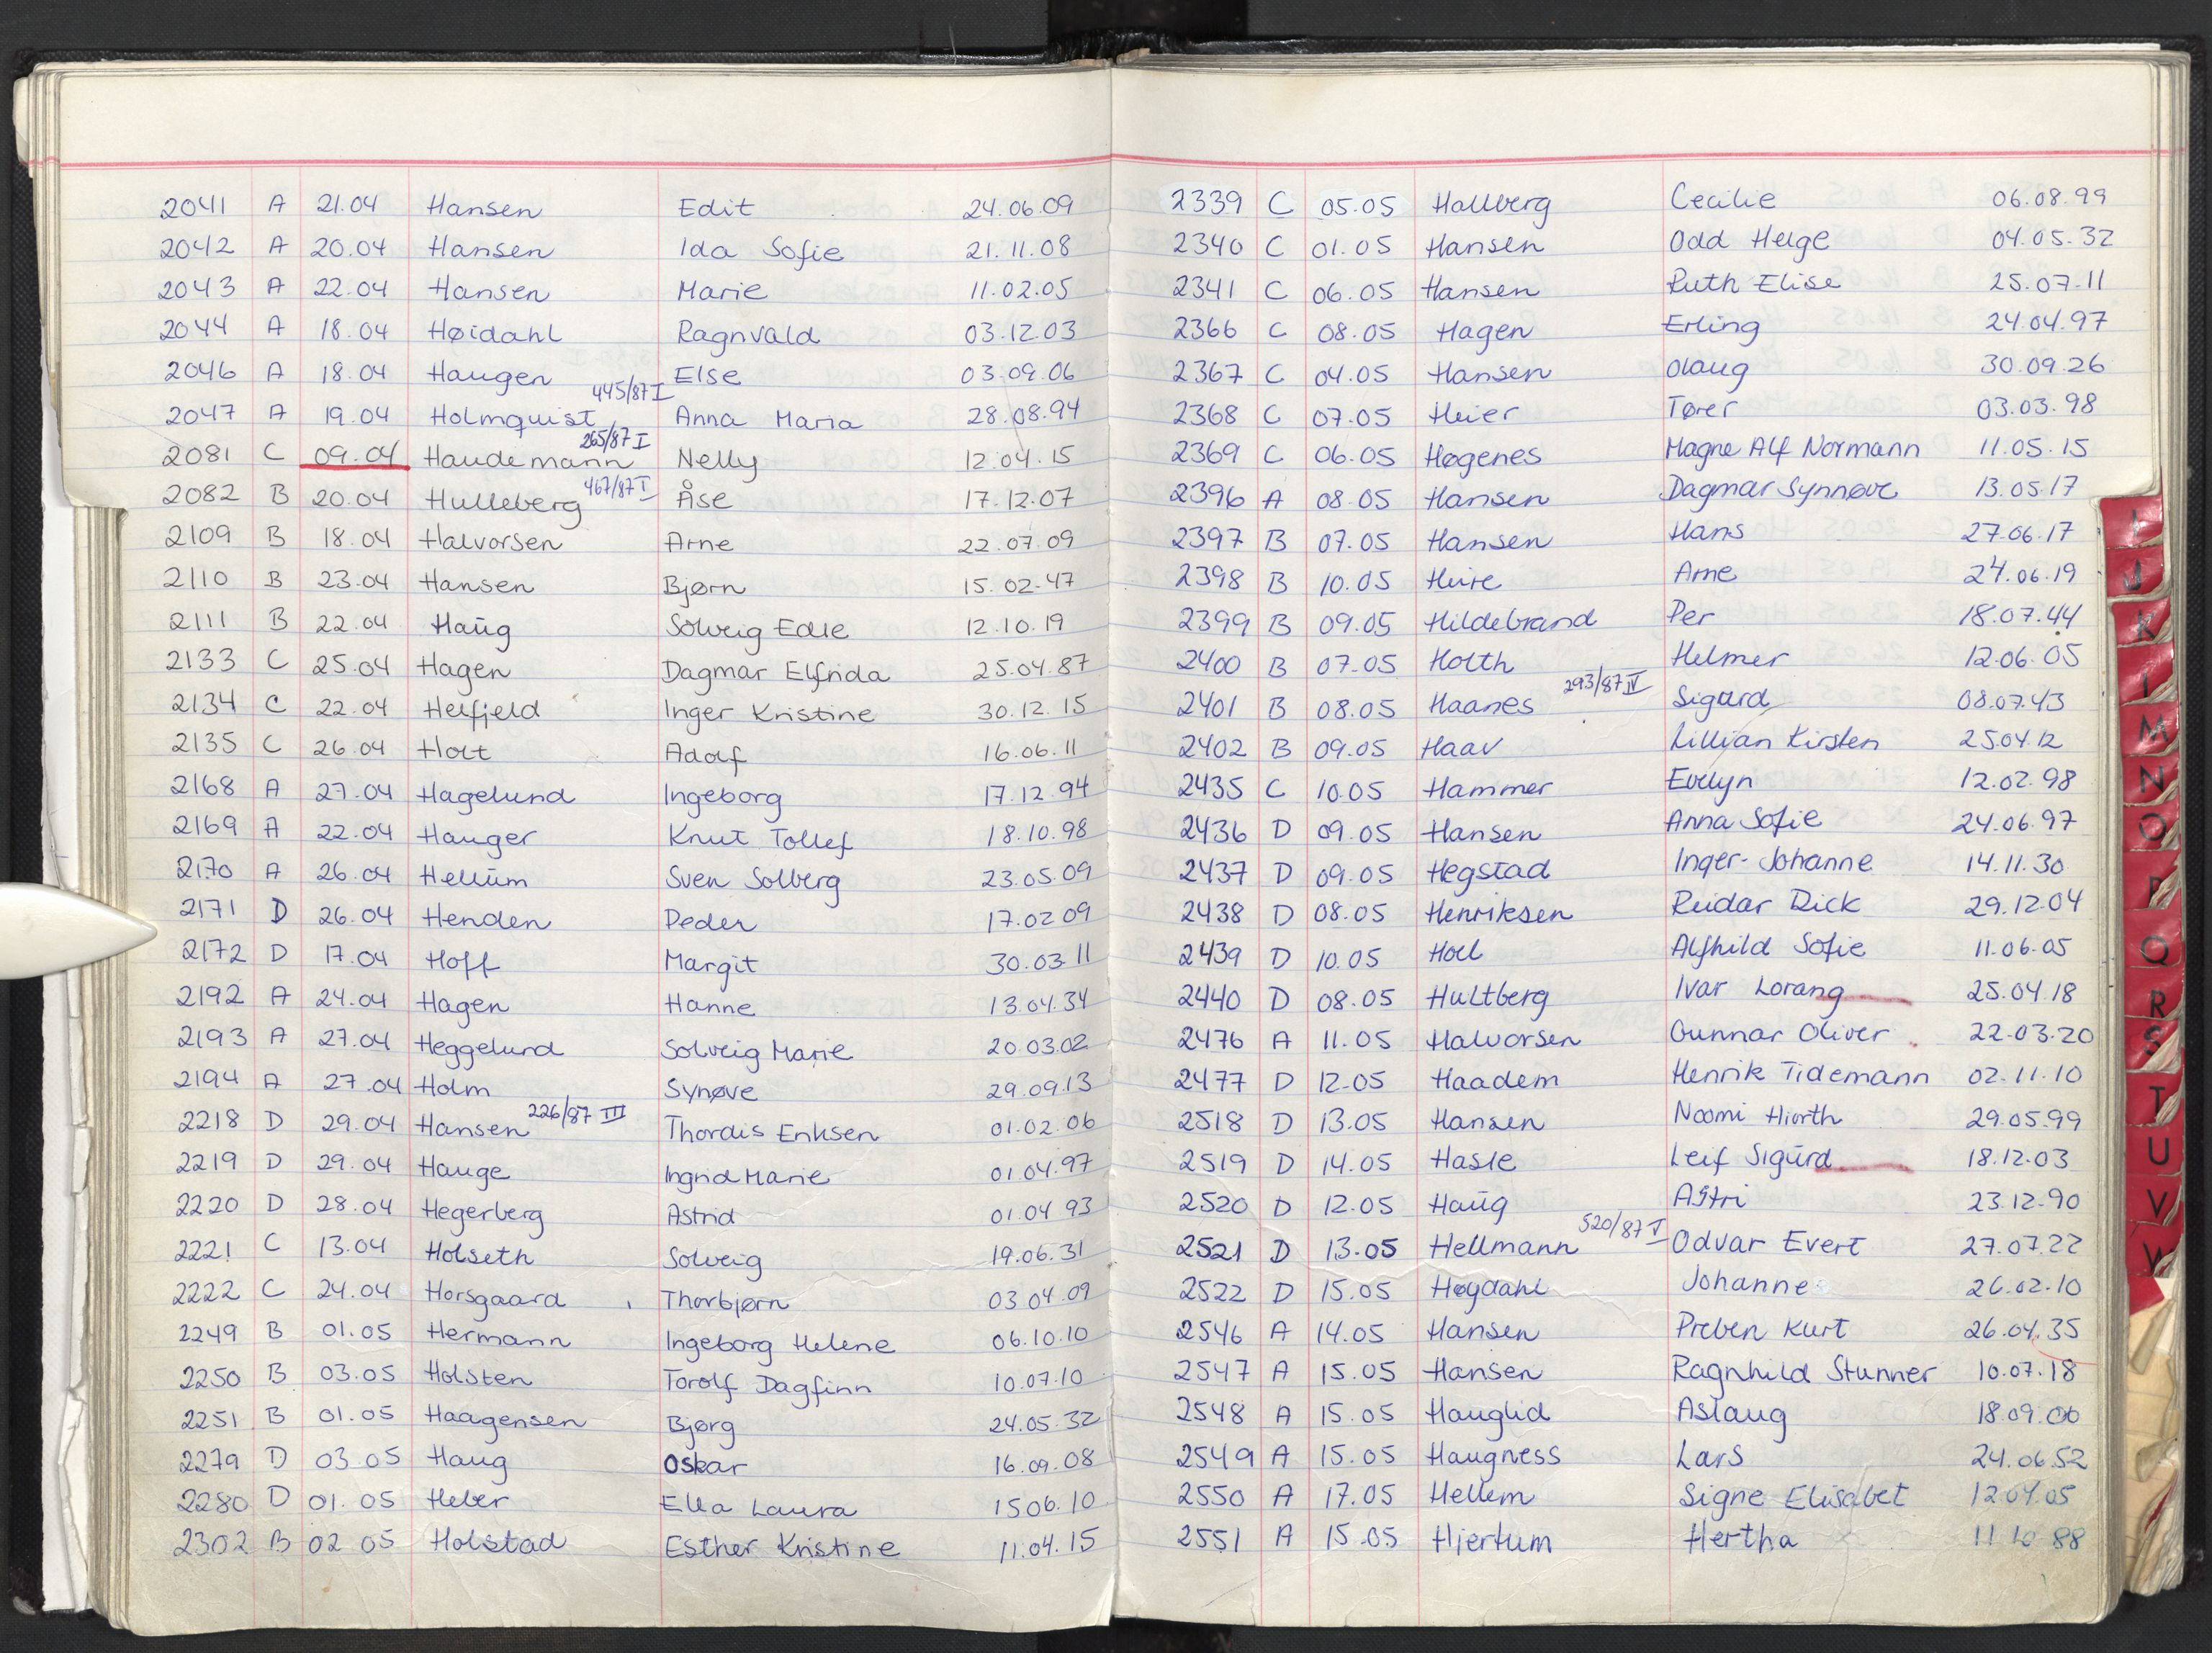 2041 A 21.04 Hansen Edit 24.06.09
2042 A 20.04 Hansen Ida Sofie 21.11.08
2043 A 22.04 Hansen Marie 11.02.05
2044 A 18.04 Høidahl Ragnvald 03.12.03
2046 A 18.04 Haugen Else 03.09.06
445/87 I
2047 A 19.04 Holmquist Anna Maria 28.08.94
265/87 I
2081 C 09.04 Haudemann Nelly 12.04.15
467/87 I
2082 B 20.04 Hulleberg Åse 17.12.07
2109 B 18.04 Halvorsen Arne 22.07.09
2110 B 23.04 Hansen Bjørn 15.02.47
2111 B 22.04 Haug Solveig Edle 12.10.19
2133 C 25.04 Hagen Dagmar Elfrida 25.04.87
2134 C 22.04 Helfjeld Inger Kristine 30.12.15
2135 C 26.04 Holt Adolf 16.06.11
2168 A 27.04 Hagelund Ingeborg 17.12.94
2169 A 22.04 Hauger Knut Tollef 18.10.98
2170 A 26.04 Hellum Sven Solberg 23.05.09
2171 D 26.04 Henden Peder 17.02.09
2172 D 17.04 Hoff Margit 30.03.11
2192 A 24.04 Hagen Hanne 13.04.34
2193 A 27.04 Heggelund Solveig Marie 20.03.02
2194 A 27.04 Holm Synøve 29.09.13
2218 D 29.04 Hansen 226/87 III Thordis Eriksen 01.02.06
2219 D 29.04 Hauge Ingrid Marie 01.04.97
2220 D 28.04 Hegerberg Astrid 01.04.93
2221 C 13.04 Holseth Solveig 19.06.31
2222 C 24.04 Horsgaard Thorbjørn 03.04.09
2249 B 01.05 Hermann Ingeborg Helene 06.10.10
2250 B 03.05 Holsten Torolf Dagfinn 10.07.10
2251 B 01.05 Haagensen Bjørg 24.05.32
2279 D 03.05 Haug Oskar 16.09.08
2280 D 01.05 Heber Ella Laura 15.06.10
2302 B 02.05 Holstad Esther Kristine 11.04.15
2339 C 05.05 Hallberg Cecilie 06.08.99
2340 C 01.05 Hansen Odd Helge 04.05.32
2341 C 06.05 Hansen Ruth Elise 25.07.11
2366 C 08.05 Hagen Erling 24.04.97
2367 C 04.05 Hansen Olaug 30.09.26
2368 C 07.05 Heier Tører 03.03.98
2369 C 06.05 Høgenes Magne Alf Normann 11.05.15
2396 A 08.05 Hansen Dagmar Synnøve 13.05.17
2397 B 07.05 Hansen Hans 27.06.17
2398 B 10.05 Heire Arne 24.06.19
2399 B 09.05 Hildebrand Per 18.07.44
2400 B 07.05 Holth Helmer 12.06.05
293/87 IV
2401 B 08.05 Haanes Sigurd 08.07.43
2402 B 09.05 Haav Lillian Kirsten 25.04.12
2435 C 10.05 Hammer Evelyn 12.02.98
2436 D 09.05 Hansen Anna Sofie 24.06.97
2437 D 09.05 Hegstad Inger-Johanne 14.11.30
2438 D 08.05 Henriksen Reidar Dick 29.12.04
2439 D 10.05 Hoel Alfhild Sofie 11.06.05
2440 D 08.05 Hultberg Ivar Lorang 25.04.18
2476 A 11.05 Halvorsen Gunnar Oliver 22.03.20
2477 D 12.05 Haadem Henrik Tidemann 02.11.10
2518 D 13.05 Hansen Noomi Hiorth 29.05.99
2519 D 14.05 Hasle Leif Sigurd 18.12.03
2520 D 12.05 Haug Astri 23.12.90
520/87 V
2521 D 13.05 Hellmann Odvar Evert 27.07.22
2522 D 15.05 Høydahl Johanne 26.02.10
2546 A 14.05 Hansen Preben Kurt 26.04.35
2547 A 15.05 Hansen Ragnhild Stunner 10.07.18
2548 A 15.05 Hauglid Aslaug 18.09.00
2549 A 15.05 Haugness Lars 24.06.52
2550 A 17.05 Hellem Signe Elisabet 12.04.05
2551 A 15.05 Hjertum Hertha 11 10 88
I
J
K
M
N
O
P
Q
R
S
T
U
V